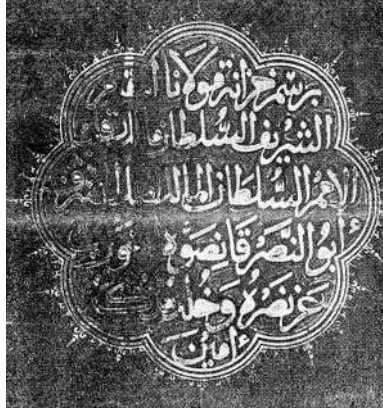 برسم خزانة مولانا المقام
الشريف السلطان
الأعظم السلطان المالك الملك
أبو النصر قانصوه الغوري
عز نصره وخلد
آمين